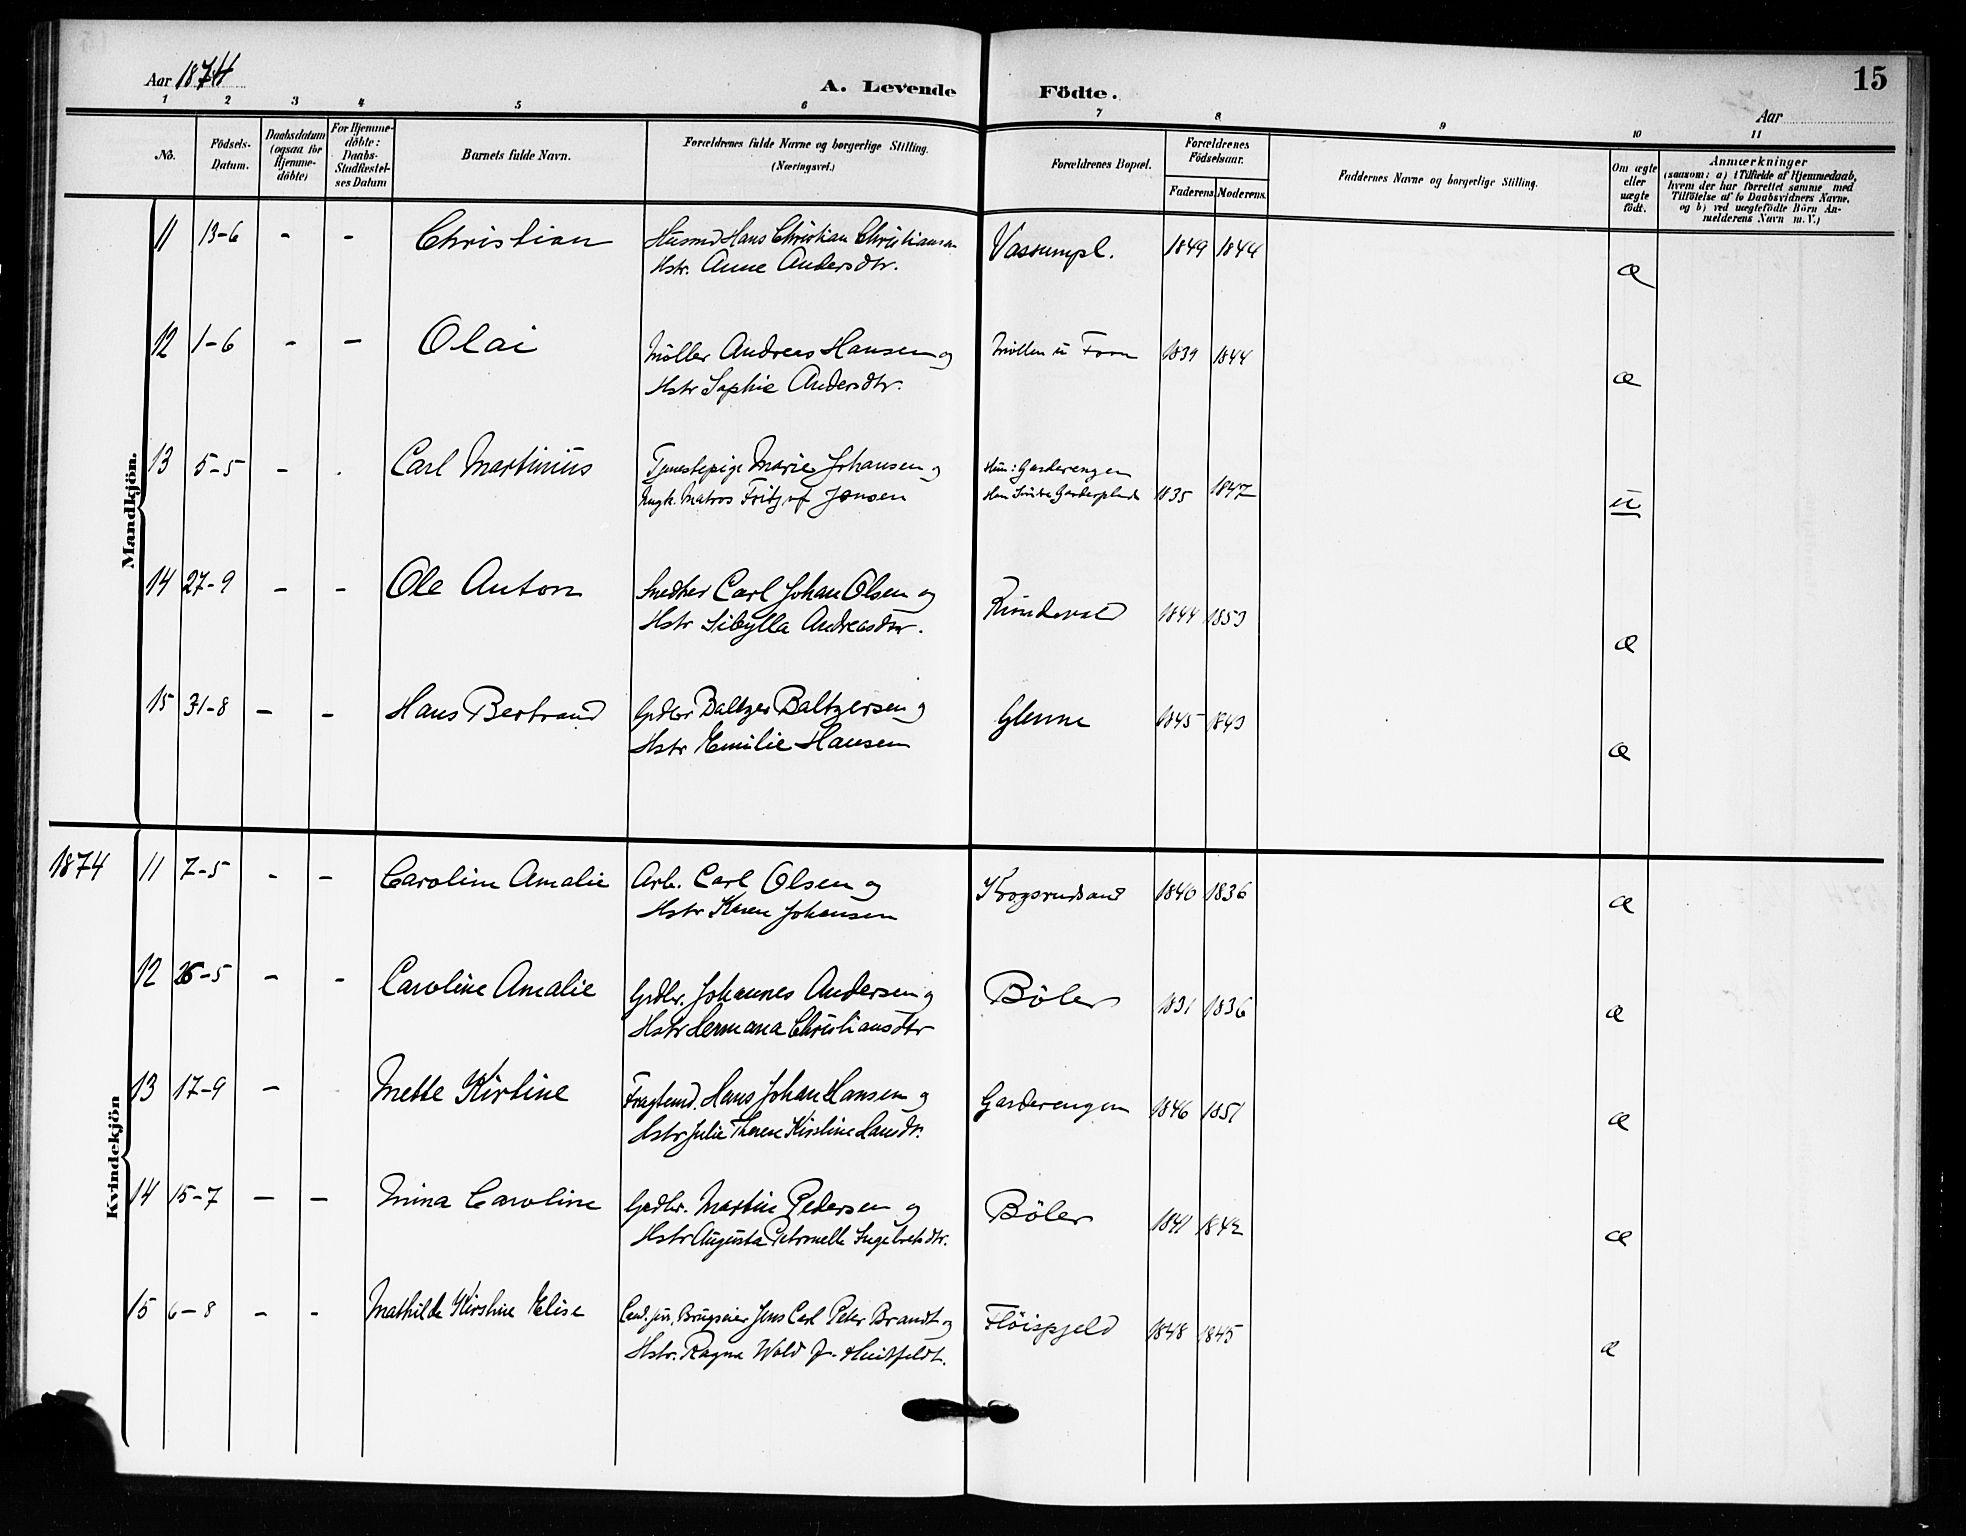 Aar 1874
A. Levende Födte.
Aar
15
1 2 3 4 5 6 7 8 9 10 11
No.
Födsels-Datum.
Daabsdatum (ogsaa for Hjemme-döbte)
For Hjemme-döbte: Daabs-Stadfæstel-ses Datum
Barnets fulde Navn.
Forældrenes fulde Navne og borgerlige Stilling. (Næringsvei.)
Forældrenes Bopæl.
Forældrenes Födselsaar.
Faderens. Moderens.
Faddernes Navne og borgerlige Stilling.
Om ægte eller uægte födt.
Anmærkninger
(saasom: a) i Tilfælde af Hjemmedaab,
hvem der har forrettet samme med
Tilföielse af to Daabsvidners Navne,
og b) ved uægtefödte Börn An-
melderens Navn m. V.)
Mandkjön.
11 13-6 - - Christian Husmd Hans Christian Christiansen Vassumpl. 1849 1844 æ
Hstr. Anne Andersdtr.
12 1-6 - - Olai Möller Andreas Hansen og Möllen u Foss 1839 1844 æ
Hstr Sophie Andersdtr.
13 5-5 - . Carl Martinius Tjenestepige Marie Johansen og Hun: Garderengen
Ungk. Matros Fritjof Jensen Han Söndre 1835 1847 u
14 27-9 - - Ole Anton Snedker Carl Johan Olsen og 1844 1853 æ
Hstr Sibylla Andreasdtr.
15 31-8 - - Hans Bertrand Grdbr Baltzer Baltzersen og Glenne 1845 1843 æ
Hstr Emilie Hansen
Kvindekjön
1874 11 7-5 - - Caroline Amalie Arb. Carl Olsen og Krogsrudsand 1840 1836 æ
Hstr Karen Johansen
12 26-5 - - Caroline Amalie Grdbr. Johannes Andersen og Böler 1831 1836 æ
Hstr Hermana Christiansdtr
13 17-9 - Mette Kirstine Fragtemd. Hans Johan Hansen og Garderengen 1846 1851 æ
Hstr Julie Therese Kirstine Larsdtr.
14 15-7 - - Mina Caroline Grdbr. Martin Pedersen og Böler 1841 1842 æ
Hstr Augusta Petronelle Ingebretsdtr.
15 6-8 - - Mathilde Kirstine Elise Cand. jur. Brugseier Jens Carl Peter Brandt og Flöispjeld 1848 1845 æ
Hstr. Ragna Wold f. Huitfeldt.